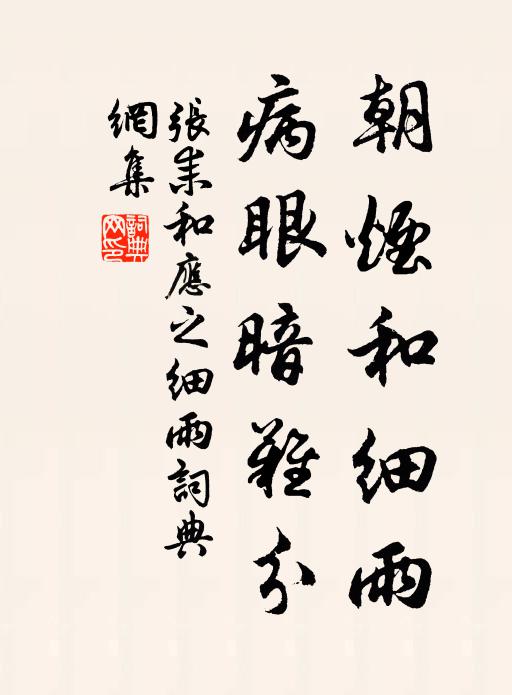 朝煙和細雨
病眼暗難分
張耒和應之細雨詞典
網集
詞典
网印